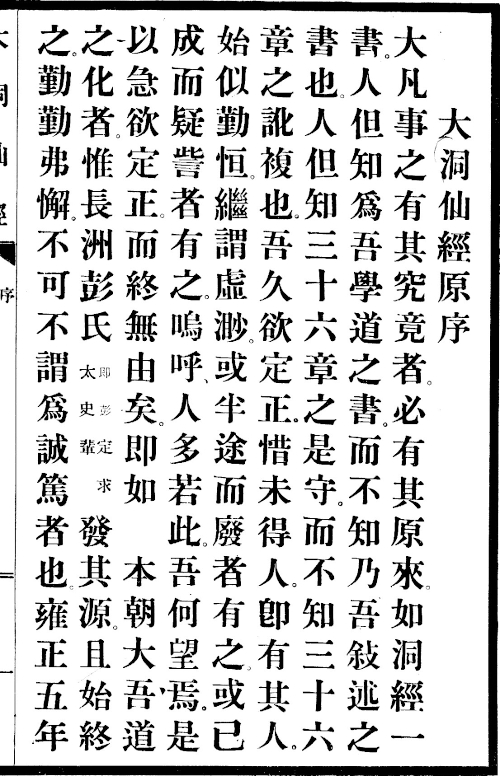 大洞仙經原序
大凡事之有其究竟者。必有其原來。如洞經一
書。人但知爲吾學道之書。而不知乃吾敍述之
書也。人但知三十六章之是守。而不知三十六
章之訛複也。吾久欲定正。惜未得人。卽有其人。
始似勤恒。繼謂虛渺。或半途而廢者有之。或已
成而疑訾者有之。嗚呼、人多若此。吾何望焉。是
以急欲定正。而終無由矣。即如　本朝大吾道
之化者。惟長洲彭氏即彭定求太史輩發其源。且始終
之勤勤弗懈。不可不謂爲誠篤者也。雍正五年
大洞仙經
序
一